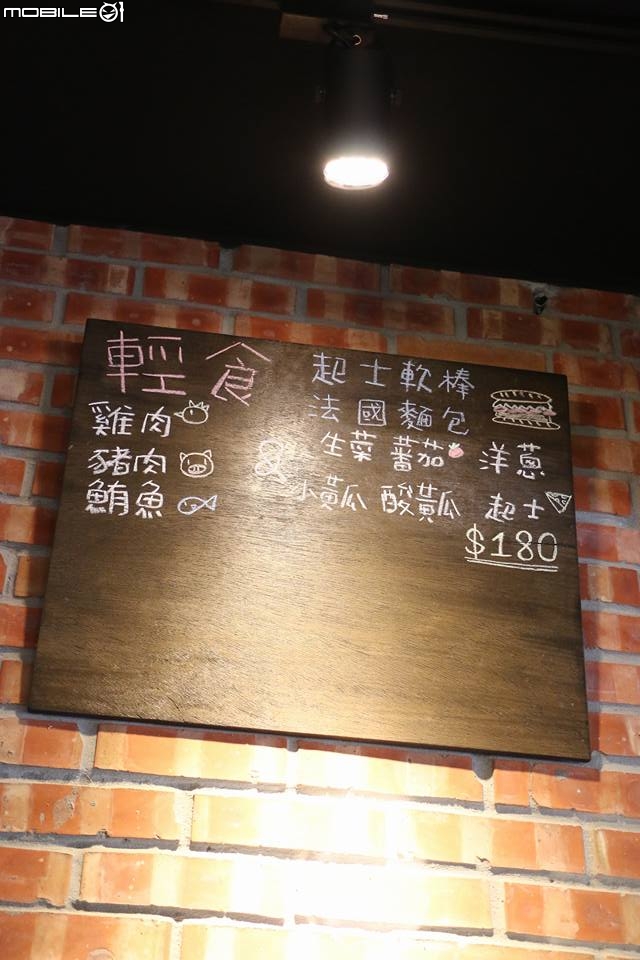 MOBILE01
輕食
雞肉
豬肉
鮪魚
&
起士軟棒
法國麵包
生菜 蕃茄 洋蔥
小黃瓜 酸黃瓜 起士
$180